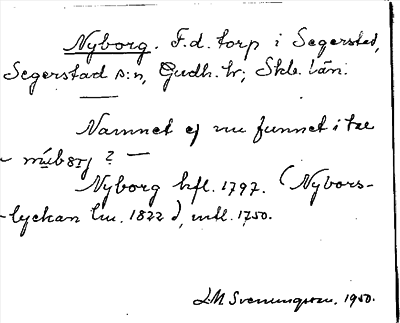 Nyborg. F.d. torp i Segerstad,
Segerstad s:n, Gudh. hr; Skbg. län.
Namnet ej nu funnet i tal
Nyborg hfl. 1797. (Nybors-
lyckan lm. 1822), mtl. 1750.
LM Svenungsson. 1950.